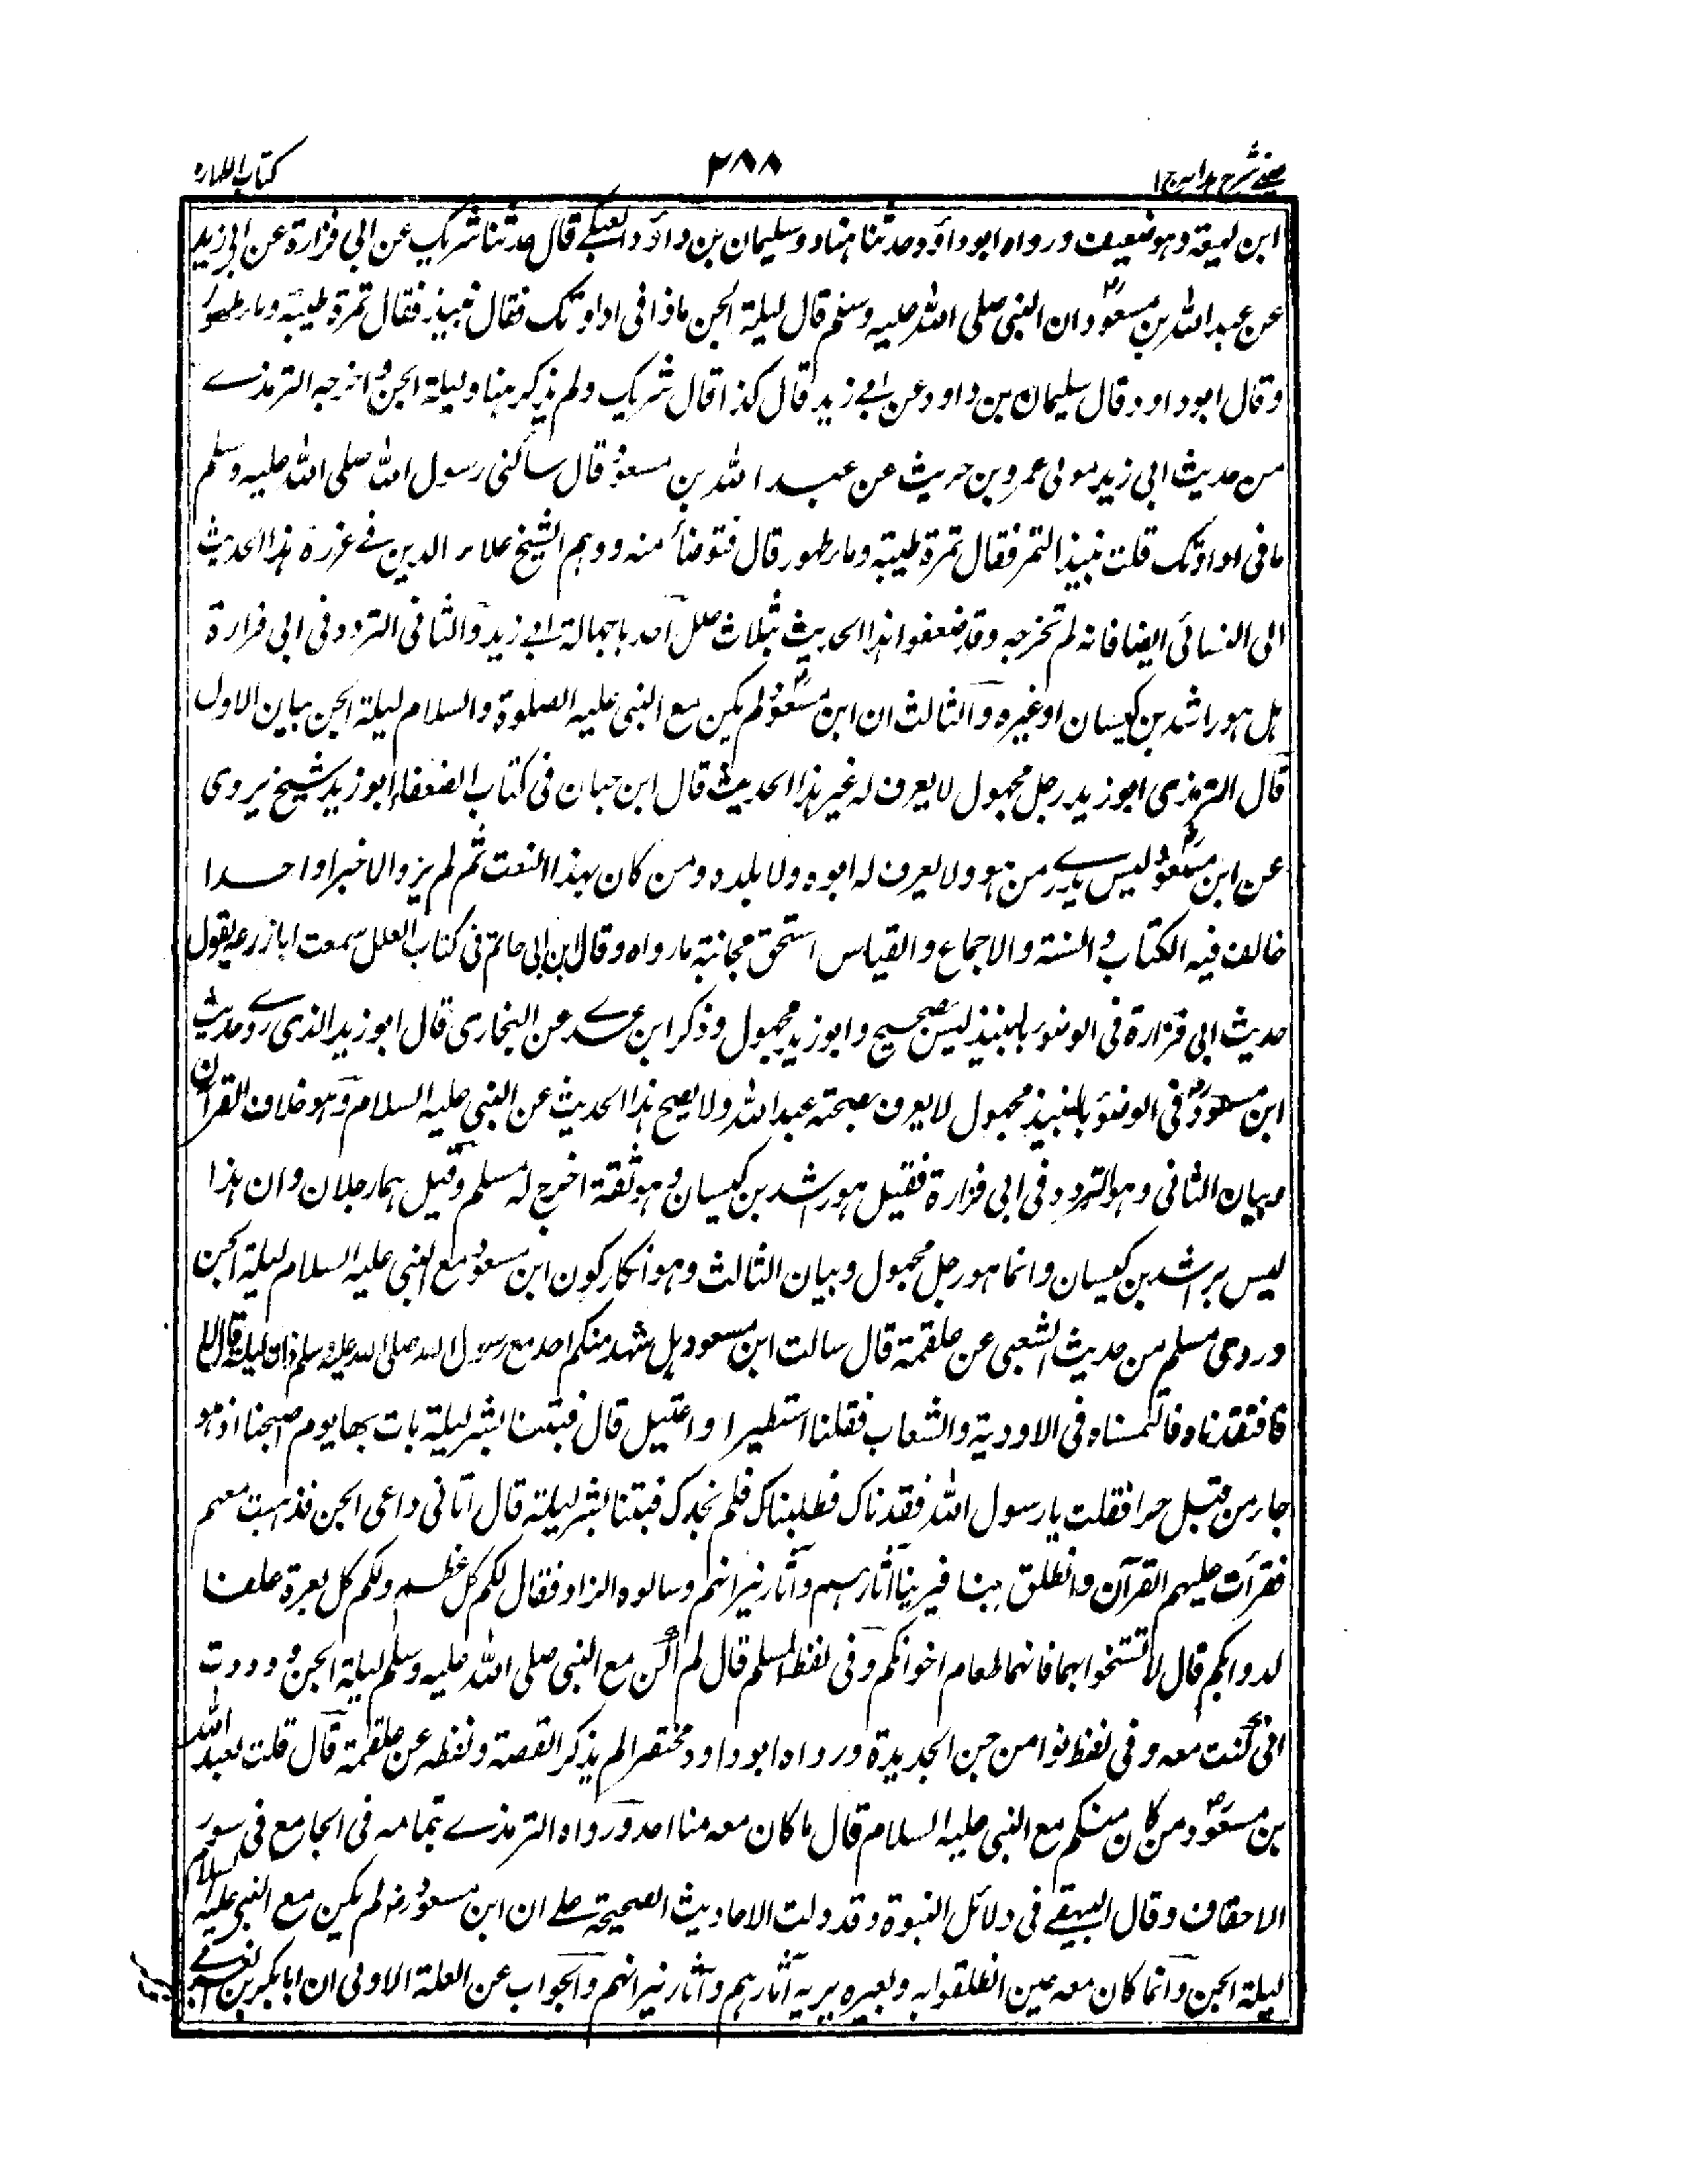 عینی شرح ہدایہ ج۱
۲۸۸
کتاب الطہارۃ
ابن لہیعۃ وہو ضعیف ورواہ ابوداؤد حدثنا ہناد وسلیمان بن داؤد العتکے قال حدثنا شریک عن ابی فزارۃ عن ابی زید
عن عبداللہ بن مسعودؓ ان النبی صلی اللہ علیہ وسلم قال لیلۃ الجن ماذا فی اداوتک فقال نبیذ فقال تمرۃ طیبۃ وماء طہور
وقال ابوداود وقال سلیمان بن داود عن ابے زید قال کذا قال شریک ولم یذکر ہناد لیلۃ الجن واخرجہ الترمذے
من حدیث ابی زید مولی عمرو بن حریث عن عبداللہ بن مسعودؓ قال سالنی رسول اللہ صلی اللہ علیہ وسلم
ما فی اداوتک قلت نبیذ التمر فقال تمرۃ طیبۃ وماء طہور قال فتوضأ منہ ووہم الشیخ علاء الدین فے عزرہ ہذا الحدیث
الی النسائی ایضا فانہ لم تخرجہ وقد ضعفوا ہذا الحدیث بثلاث علل احدہا جہالۃ ابے زید والثانی التردد فی ابی فزارۃ
ہل ہو راشد بن کیسان او غیرہ والثالث ان ابن مسعودؓ لم یکن مع النبی علیہ الصلوۃ والسلام لیلۃ الجن بیان الاول
قال الترمذی ابوزید رجل مجہول لا یعرف لہ غیر ہذا الحدیث قال ابن حبان فی کتاب الضعفاء ابوزید شیخ یروی
عن ابن مسعودؓ لیس یدرے من ہو ولا یعرف لہ ابوہ ولا بلدہ ومن کان بہذا النعت ثم لم یرو الا خبرا واحدا
خالف فیہ الکتاب والسنۃ والاجماع والقیاس استحق مجانبۃ ما رواہ وقال ابن ابی حاتم فی کتاب العلل سمعت ابا زرعۃ یقول
حدیث ابی فزارۃ فی الوضوء بالنبیذ لیس بصحیح وابوزید مجہول وذکر ابن عدے عن البخاری قال ابوزید الذی روے حدیث
ابن مسعودؓ فی الوضوء بالنبیذ مجہول لا یعرف بصحبتہ عبداللہ ولا یصح ہذا الحدیث عن النبی علیہ السلام وہو خلاف القرآن
وبیان الثانی وہو التردد فی ابی فزارۃ فقیل ہو راشد بن کیسان وہو ثقۃ اخرج لہ مسلم وقیل ہما رجلان وان ہذا
لیس براشد بن کیسان وانما ہو رجل مجہول وبیان الثالث وہو انکار کون ابن مسعودؓ مع النبی علیہ السلام لیلۃ الجن
وروی مسلم من حدیث الشعبی عن علقمۃ قال سالت ابن مسعود ہل شہد منکم احد مع رسول اللہ صلی اللہ علیہ وسلم ذات لیلۃ قال لا
فافتقدناہ فالتمسناہ فی الاودیۃ والشعاب فقلنا استطیر او اغتیل قال فبتنا بشر لیلۃ بات بہا یوم اصبحنا اذ ہو
جاء من قبل حرا فقلت یا رسول اللہ فقدناک فطلبناک فلم نجدک فبتنا بشر لیلۃ قال اتانی داعی الجن فذہبت معہم
فقرأت علیہم القرآن وانطلق بنا فیرینا آثارہم وآثار نیرانہم وسالوہ الزاد فقال لکم کل عظم ولکم کل بعرۃ علفا
لدوابکم قال لا تستنجوا بہما فانہما طعام اخوانکم وفی لفظ المسلم قال لم اکن مع النبی صلی اللہ علیہ وسلم لیلۃ الجن ووددت
انی کنت معہ وفی لفظ نوا من جن الجدیدۃ ورواہ ابوداود مختصرا لم یذکر القصۃ ولفظہ عن علقمۃ قال قلت لعبد اللہ
بن مسعودؓ ومن کان منکم مع النبی علیہ السلام قال ما کان معہ منا احد ورواہ الترمذے بتمامہ فی الجامع فی سور
الاحقاف وقال البیہقے فی دلائل النبوۃ وقد دلت الاحادیث الصحیحۃ علے ان ابن مسعودؓ لم یکن مع النبی علیہ السلام
لیلۃ الجن وانما کان معہ حین انطلقوا بہ وبغیرہ یریہ آثارہم وآثار نیرانہم والجواب عن العلۃ الاولی ان ابابکر بن